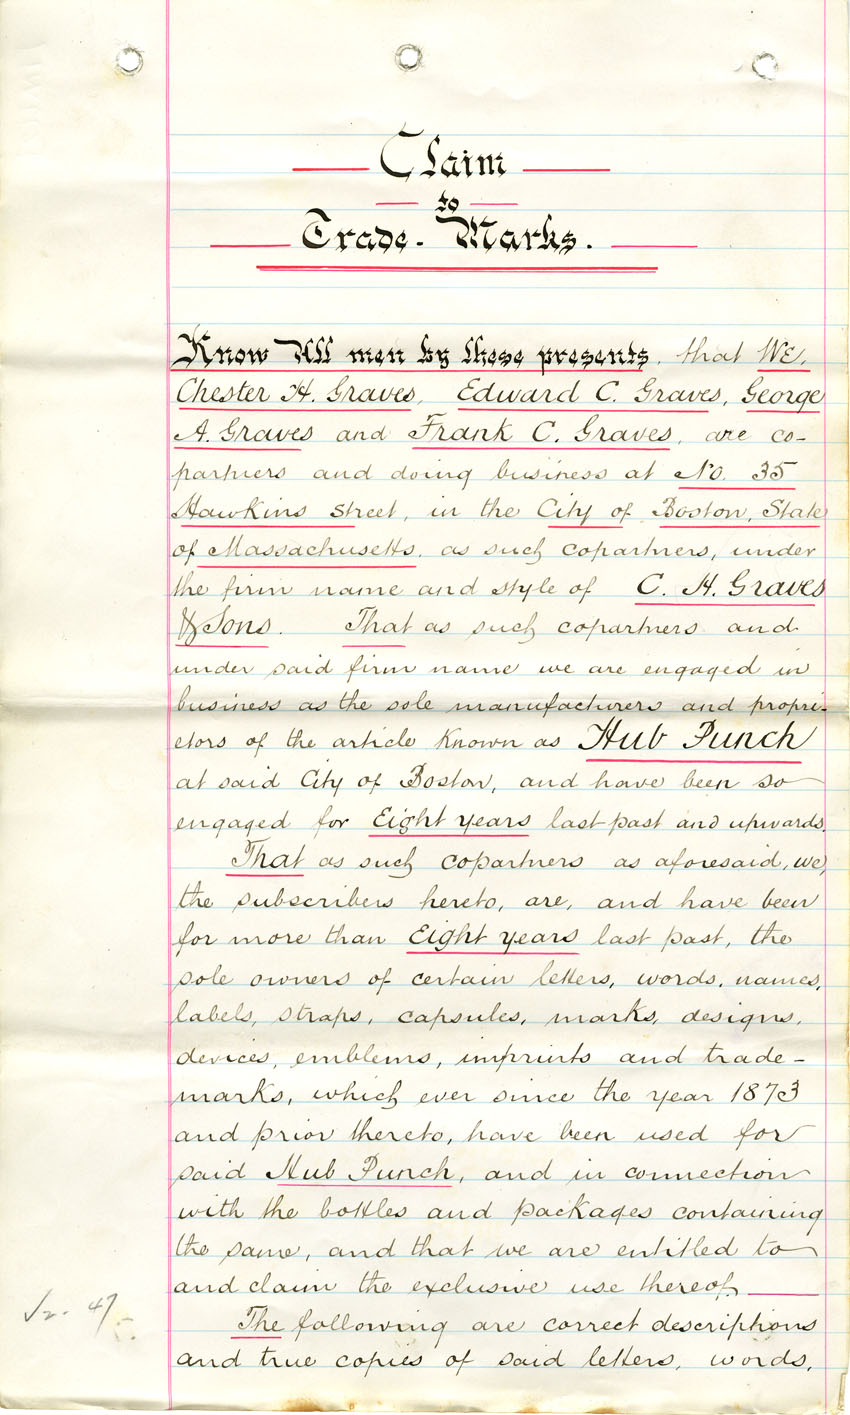 Claim
to
Trade-Marks.
Know All men by these presents, that We,
Chester H. Graves, Edward C. Graves, George
A. Graves and Frank C. Graves, are co-
partners and doing business at No. 35
Hawkins street, in the City of Boston, State
of Massachusetts, as such copartners, under
the firm name and style of C. H. Graves
& Sons. That as such copartners and
under said firm name we are engaged in
business as the sole manufacturers and propri-
etors of the article known as Hub Punch
at said City of Boston, and have been so
engaged for Eight years last past and upwards.
That as such copartners as aforesaid, we,
the subscribers hereto, are, and have been
for more than Eight years last past, the
sole owners of certain letters, words, names,
labels, straps, capsules, marks, designs,
devices, emblems, imprints and trade-
marks, which ever since the year 1873
and prior thereto, have been used for
said Hub Punch, and in connection
with the bottles and packages containing
the same, and that we are entitled to
and claim the exclusive use thereof.
The following are correct descriptions
and true copies of said letters, words,
47